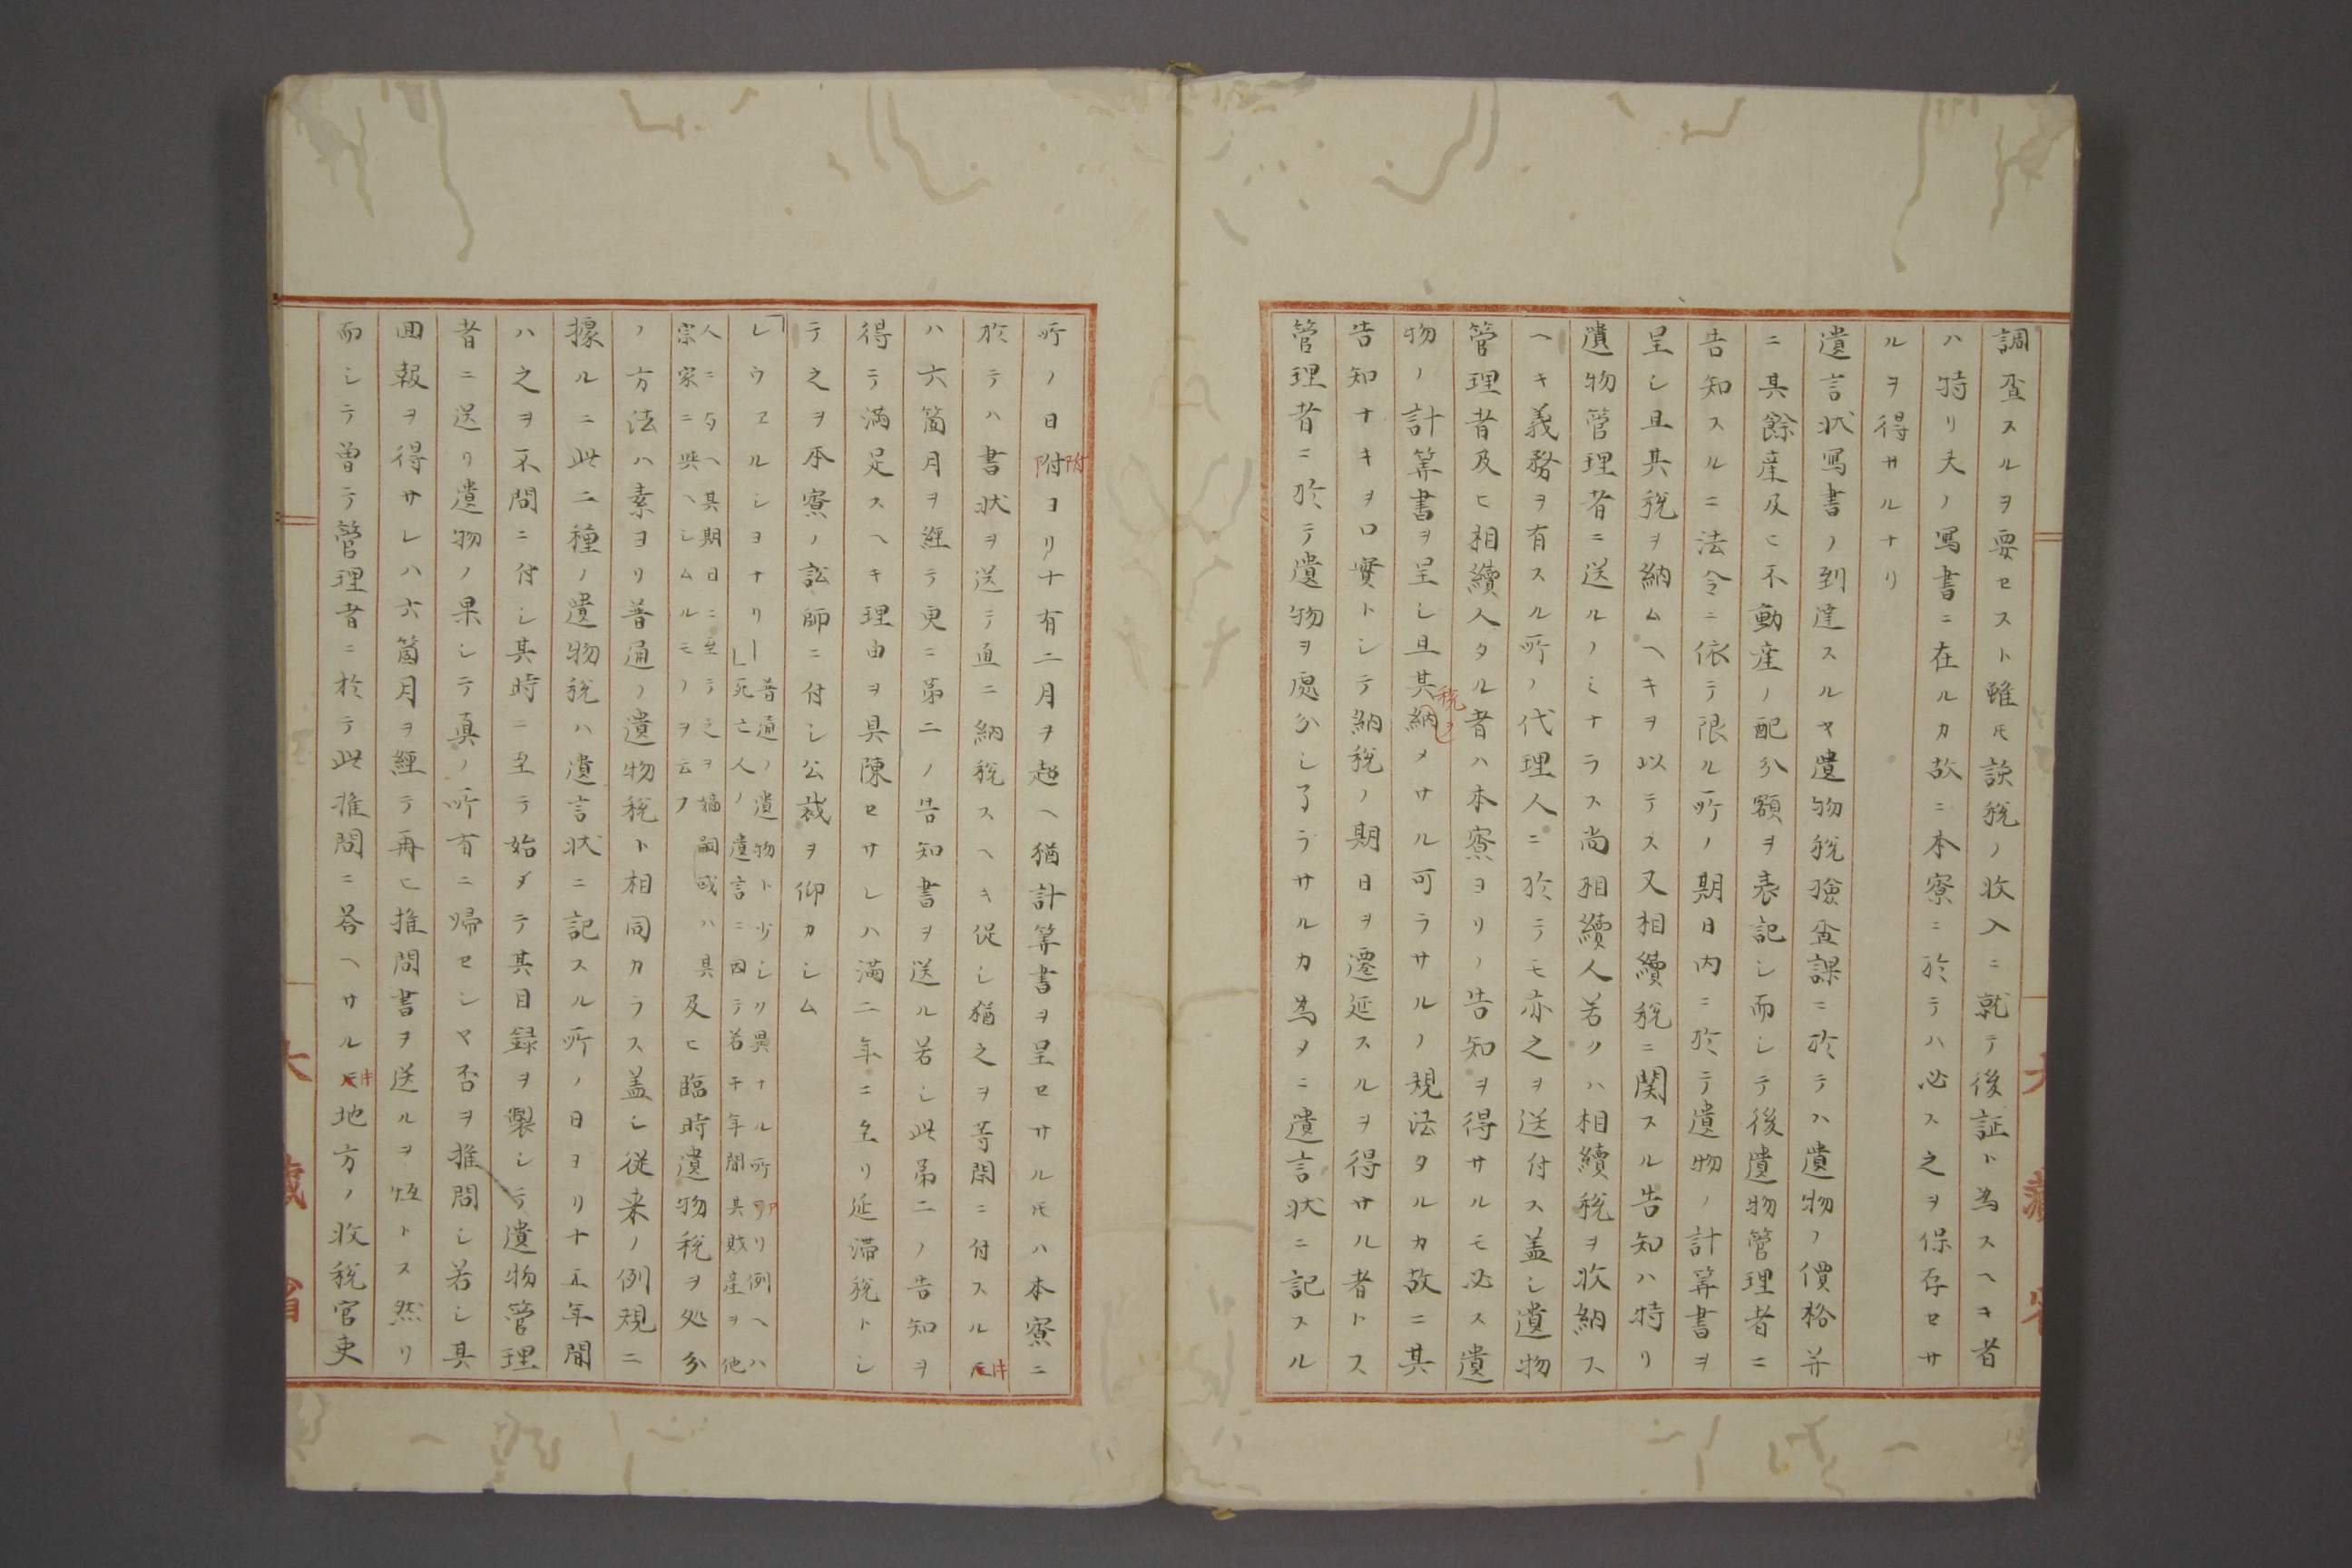 調査スルヲ要セスト雖𪜈該税ノ收入ニ就テ後証ト為スヘキ者
ハ特リ夫ノ寫書ニ在ルカ故ニ本寮ニ於テハ必ス之ヲ保存セサ
ルヲ得サルナリ
遺言状寫書ノ到達スルヤ遺物税撿査課ニ於テハ遺物ノ價格并
ニ其餘産及ヒ不動産ノ配分額ヲ表記シ而シテ後遺物管理者ニ
告知スルニ法令ニ依テ限ル所ノ期日内ニ於テ遺物ノ計筭書ヲ
呈シ且其税ヲ納ムヘキヲ以テス又相續税ニ関スル告知ハ特リ
遺物管理者ニ送ルノミナラス尚相續人若クハ相續税ヲ收納ス
ヘキ義務ヲ有スル所ノ代理人ニ於テモ亦之ヲ送付ス盖シ遺物
管理者及ヒ相續人タル者ハ本寮ヨリノ告知ヲ得サルモ必ス遺
物ノ計筭書ヲ呈シ且其税ヲ納メサル可ラサルノ規法タルカ故ニ其
告知ナキヲ口實トシテ納税ノ期日ヲ遷延スルヲ得サル者トス
管理者ニ於テ遺物ヲ處分シ了ラサルカ為メニ遺言状ニ記スル
所ノ日附ヨリ十有二月ヲ超ヘ猶計筭書ヲ呈セサル𪜈ハ本寮ニ
於テハ書状ヲ送テ直ニ納税スヘキ促シ猶之ヲ等閑ニ付スルキ
ハ六箇月ヲ經テ更ニ第二ノ告知書ヲ送ル若シ此第二ノ告知ヲ
得テ満足スヘキ理由ヲ具陳セサレハ満二年ニ至リ延滞税トシ
テ之ヲ本寮ノ訟師ニ付シ公裁ヲ仰カシム
「レウヱルシヨナリー」普通ノ遺物ト少シク異ナル所アリ例ヘハ
死亡人ノ遺言ニ因テ若干年間其財産ヲ他
人ニ与ヘ其期日ニ至テ之ヲ嫡嗣或ハ其
宗家ニ與ヘシムルモノヲ云フ
及ヒ臨時遺物税ヲ処分
ノ方法ハ素ヨリ普通ノ遺物税ト相同カラス盖シ従来ノ例規ニ
據ルニ此二種ノ遺物税ハ遺言状ニ記スル所ノ日ヨリ十五年間
ハ之ヲ不問ニ付シ其時ニ至テ始メテ其目録ヲ製シテ遺物管理
者ニ送リ遺物ノ果シテ真ノ所有ニ帰セシヤ否ヲ推問シ若シ其
回報ヲ得サレハ六箇月ヲ經テ再ヒ推問書ヲ送ルヲ恒トス然リ
而シテ曽テ管理者ニ於テ此推問ニ答ヘサルキ地方ノ收税官吏
大藏省